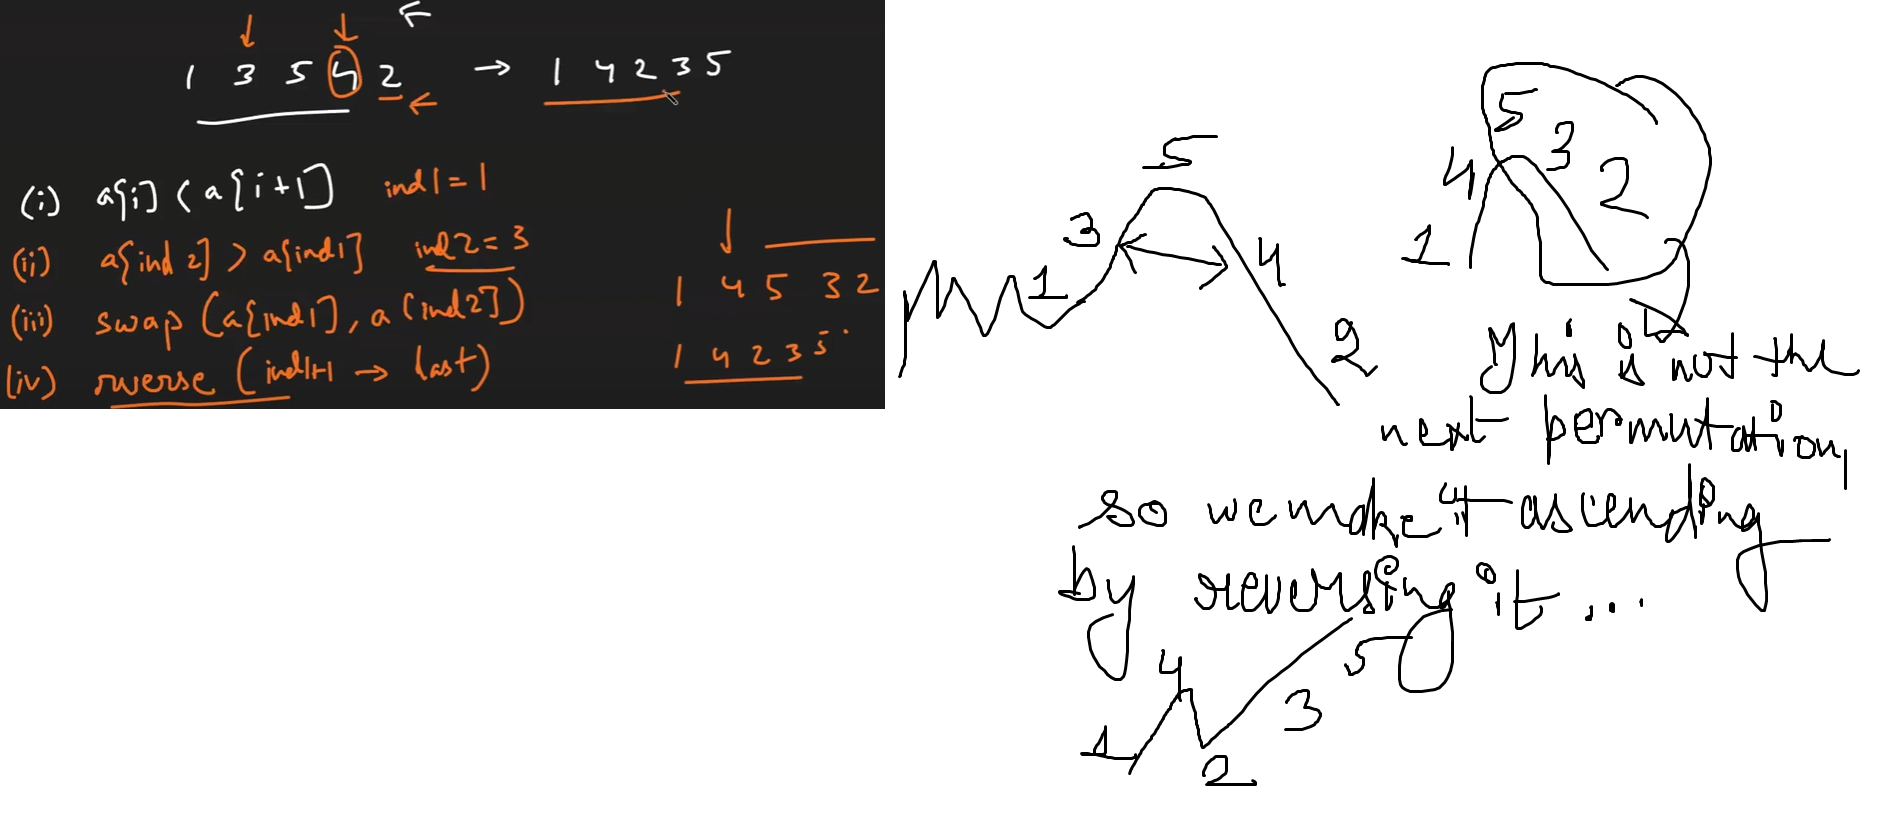 1 3 5 4 2 → 1 4 2 3 5
(i) a[i] < a[i+1] ind1 = 1
(ii) a[ind2] > a[ind1] ind2 = 3
(iii) swap (a[ind1], a[ind2])
(iv) rverse (ind1+1 → last)
1 4 5 3 2
1 4 2 3 5
1 3 5 4 2
1 4 5 3 2
This is not the
next permutation,
so we make it ascending
by reversing it ...
1 4 2 3 5